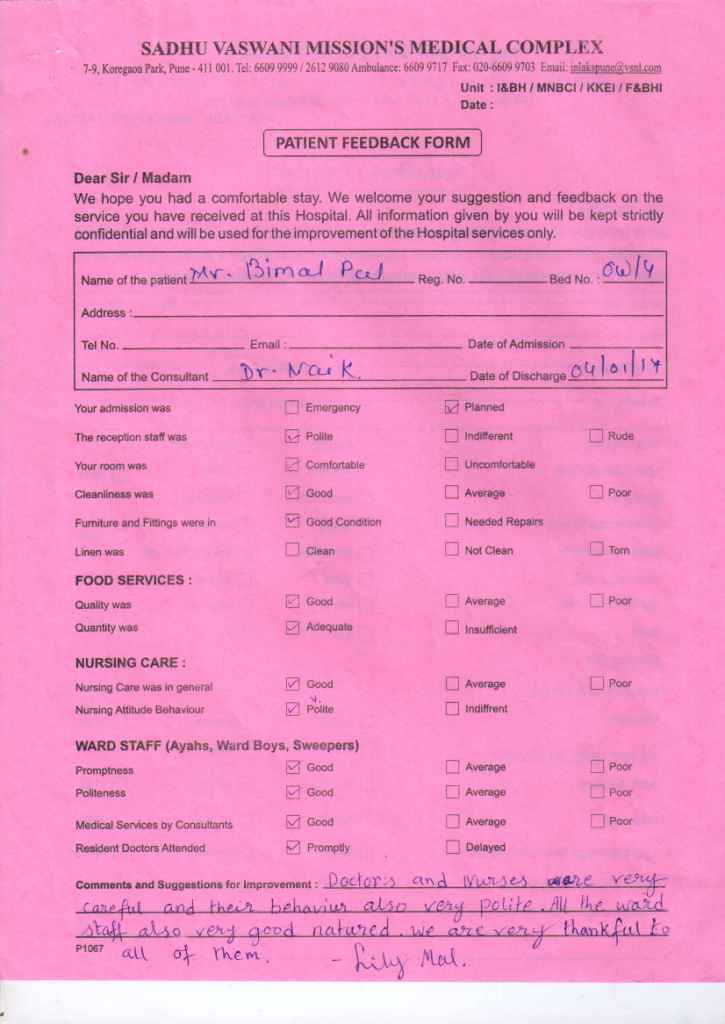 SADHU VASWANI MISSION'S MEDICAL COMPLEX
7-9, Koregaon Park, Pune - 411 001. Tel: 6609 9999 / 2612 9080 Ambulance: 6609 9717 Fax: 020-6609 9703 Email: inlakspune@vsnl.com
Unit : I&BH / MNBCI / KKEI / F&BHI
Date :
PATIENT FEEDBACK FORM
Dear Sir / Madam
We hope you had a comfortable stay. We welcome your suggestion and feedback on the
service you have received at this Hospital. All information given by you will be kept strictly
confidential and will be used for the improvement of the Hospital services only.
Name of the patient Mr. Bimal Pal Reg. No. Bed No. : OW/4
Address :
Tel No. Email : Date of Admission
Name of the Consultant Dr. Naik. Date of Discharge 04/01/17
Your admission was Emergency Planned
The reception staff was Polite Indifferent Rude
Your room was Comfortable Uncomfortable
Cleanliness was Good Average Poor
Furniture and Fittings were in Good Condition Needed Repairs
Linen was Clean Not Clean Torn
FOOD SERVICES :
Quality was Good Average Poor
Quantity was Adequate Insufficient
NURSING CARE :
Nursing Care was in general Good Average Poor
Nursing Attitude Behaviour v. Polite Indiffrent
WARD STAFF (Ayahs, Ward Boys, Sweepers)
Promptness Good Average Poor
Politeness Good Average Poor
Medical Services by Consultants Good Average Poor
Resident Doctors Attended Promptly Delayed
Comments and Suggestions for Improvement : Doctors and Nurses are very
careful and their behaviur also very polite. All the ward
staff also very good natured. we are very thankful to
P1067 all of them. - Lily Mal.